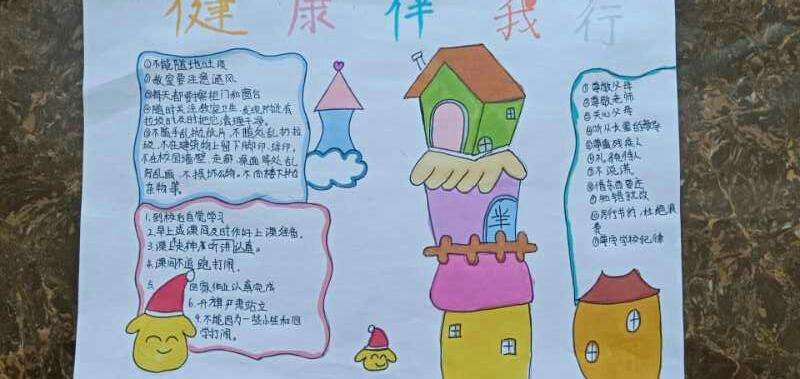 健康伴我行
①不能随地吐痰
②教室要注意通风
③每天都要擦柜门和窗台
④随时关注教室卫生,发现附近有
垃圾时及时把它清理干净。
⑤不随手乱抛纸片,不随处乱扔垃
圾,不在建筑物上留下脚印、球印,
不在校园墙壁、走廊、桌面等处乱
写乱画,不损坏公物。不向楼下抛
杂物等。
1.到校后自觉学习
2.早上或课间及时作好上课准备。
3.课上
4.课间不追跑打闹。
5.回家作业认真完成
6.升旗严肃站立
不能因为一些小事和同
学打闹。
①尊敬父母
②尊敬老师
③关心父母
④听从长辈的
⑤尊重残疾人
⑥礼貌待人
⑦不说谎
⑧借东西要还
⑨知错就改
⑩厉行节约,杜绝浪
费
遵守学校纪律